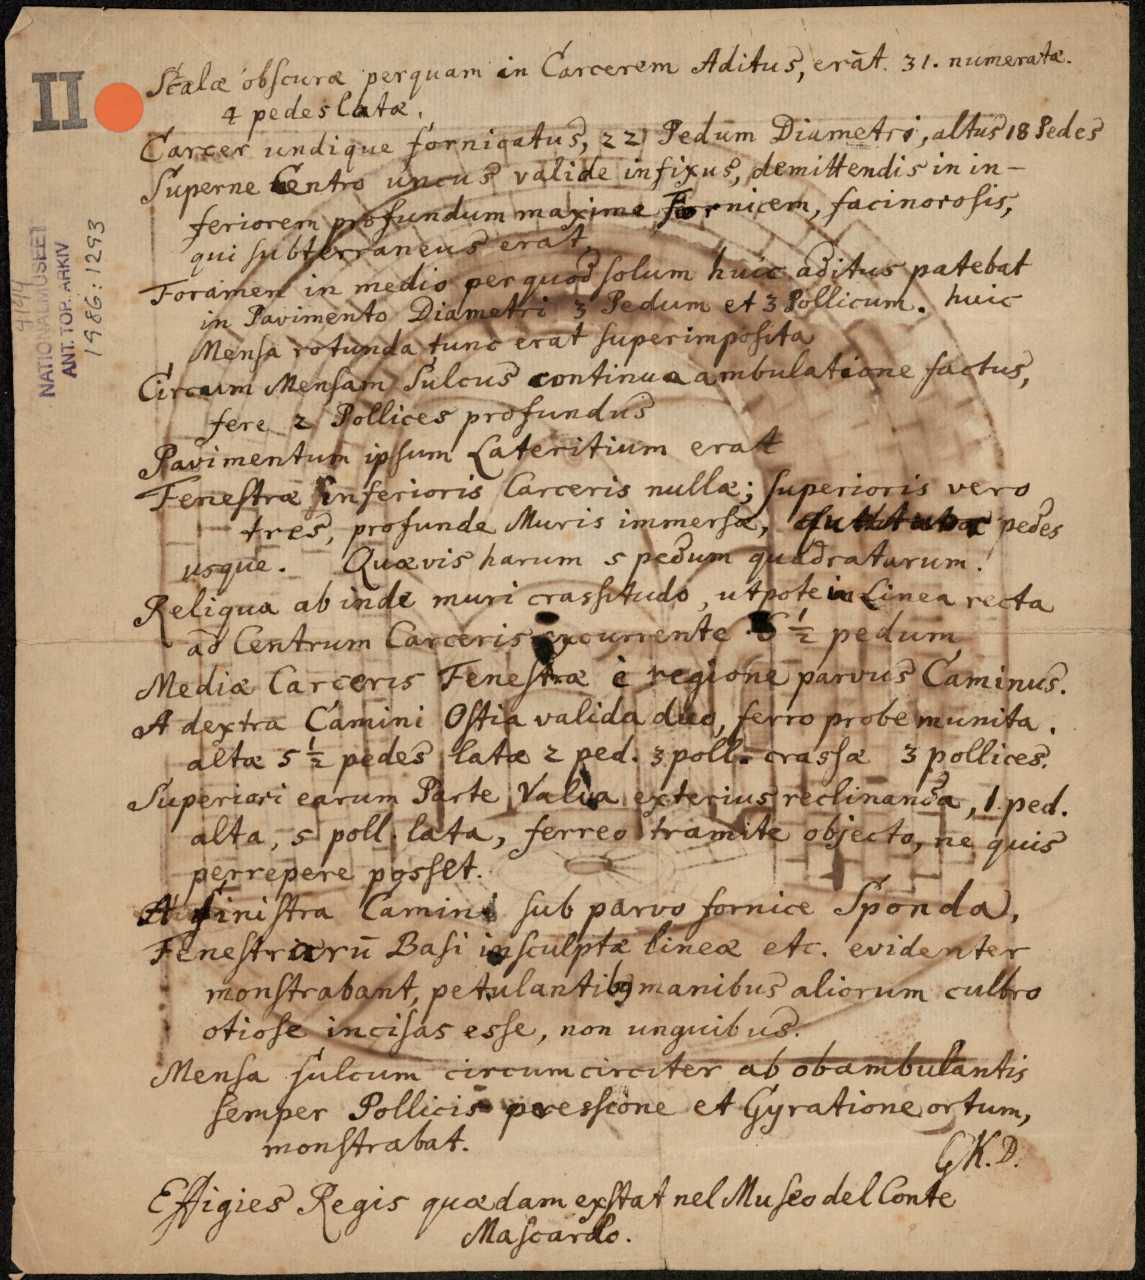 II
4144
NATIONALMUSEET
ANT. TOP. ARKIV
1986:1293
Scalæ obscuræ perquam in Carcerem Aditus, erāt. 31. numeratæ.
4 pedes latæ.
Carcer undique fornicatus, 22 Pedum Diametri, altus 18 Pedes
Superne Centro uncus valide infixus, demittendis in in-
feriorem profundum maxime Fornicem, facinorosis,
qui subterraneus erat.
Foramen in medio per quod solum huic aditus patebat
in Pavimento Diametri 3 Pedum et 3 Pollicum. huic
Mensa rotunda tunc erat superimposita
Circum Mensam Sulcus continua ambulatione factus,
fere 2 Pollices profundus
Pavimentum ipsum Lateritium erat
Fenestræ Inferioris Carceris nullæ; superioris vero
tres, profunde Muris immersæ, pedes
usque. Quævis harum 5 pedum quadratarum.
Reliqua ab inde muri crassitudo, utpote in Linea recta
ad Centrum Carceris excurrente 6 ½ pedum
Mediæ Carceris Fenestræ è regione parvus Caminus.
A dextra Camini Ostia valida duo, ferro probe munita.
altæ 5 ½ pedes latæ 2 ped. 3 poll. crassæ 3 pollices.
Superiori earum Parte Valva exterius reclinanda, 1. ped.
alta, 5 poll. lata, ferreo tramite objecto, ne quis
perrepere posset.
A sinistra Camini sub parvo fornice Sponda.
Fenestrarū Basi insculptæ lineæ etc. evidenter
monstrabant, petulantibꝰ manibus aliorum cultro
otiose incisas esse, non unguibus.
Mensa sulcum circumcirciter ab obambulantis
semper Pollicis pressione et Gyratione ortum,
monstrabat.
G K. D.
Effigies Regis quædam exstat nel Museo del Conte
Mascardo.